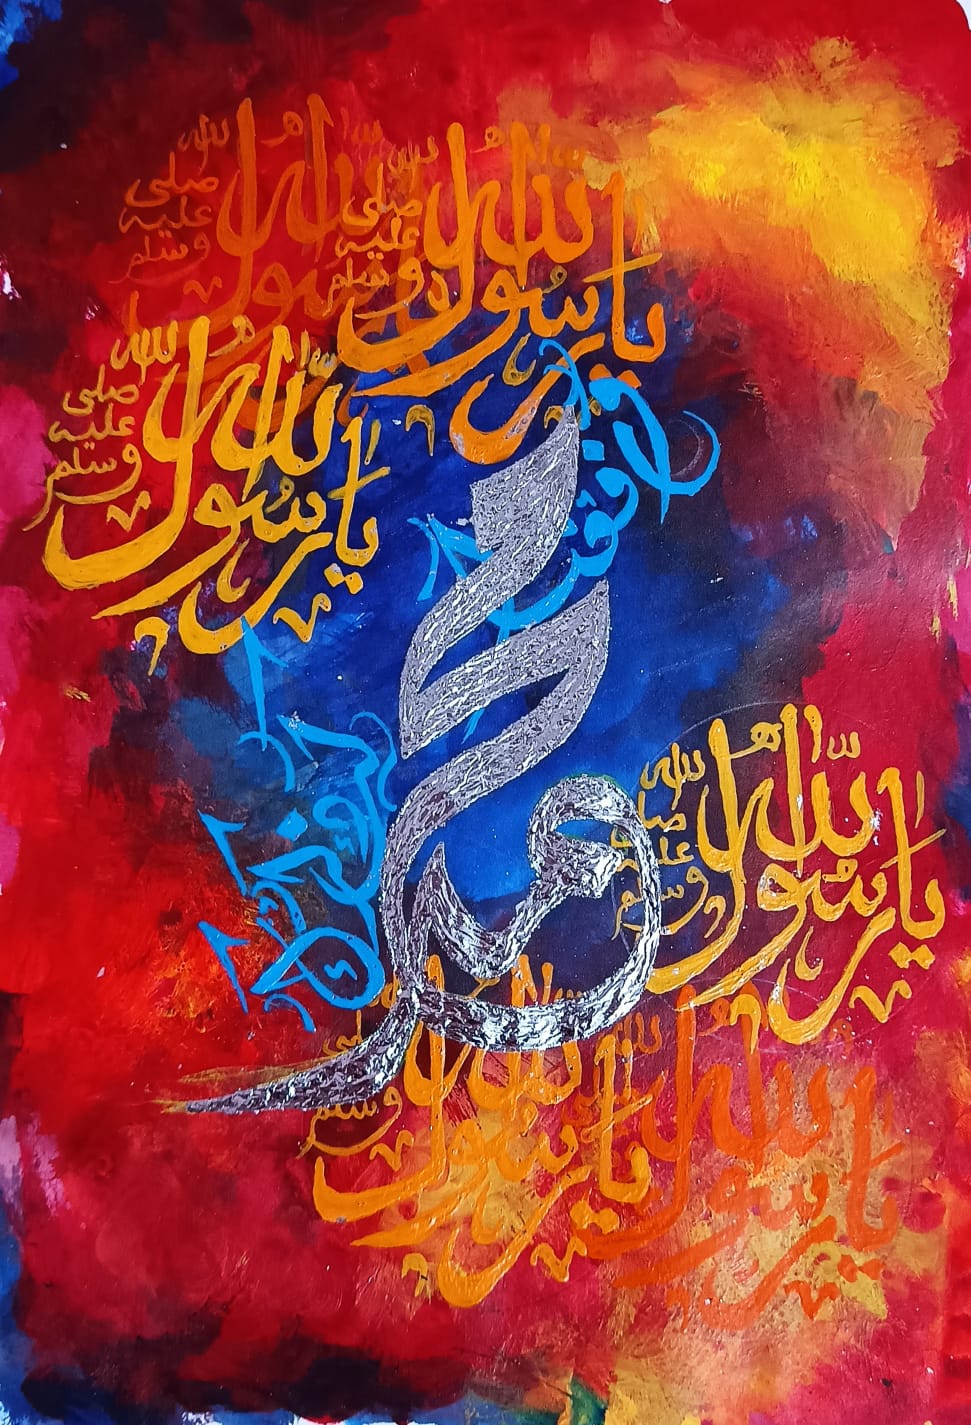 رسول الله صلى الله عليه وسلم
يا رسول الله صلى الله عليه وسلم
يا رسول الله صلى الله عليه وسلم
محمد
يا رسول الله صلى الله عليه وسلم
يا رسول الله وسلم
يا رسول الله